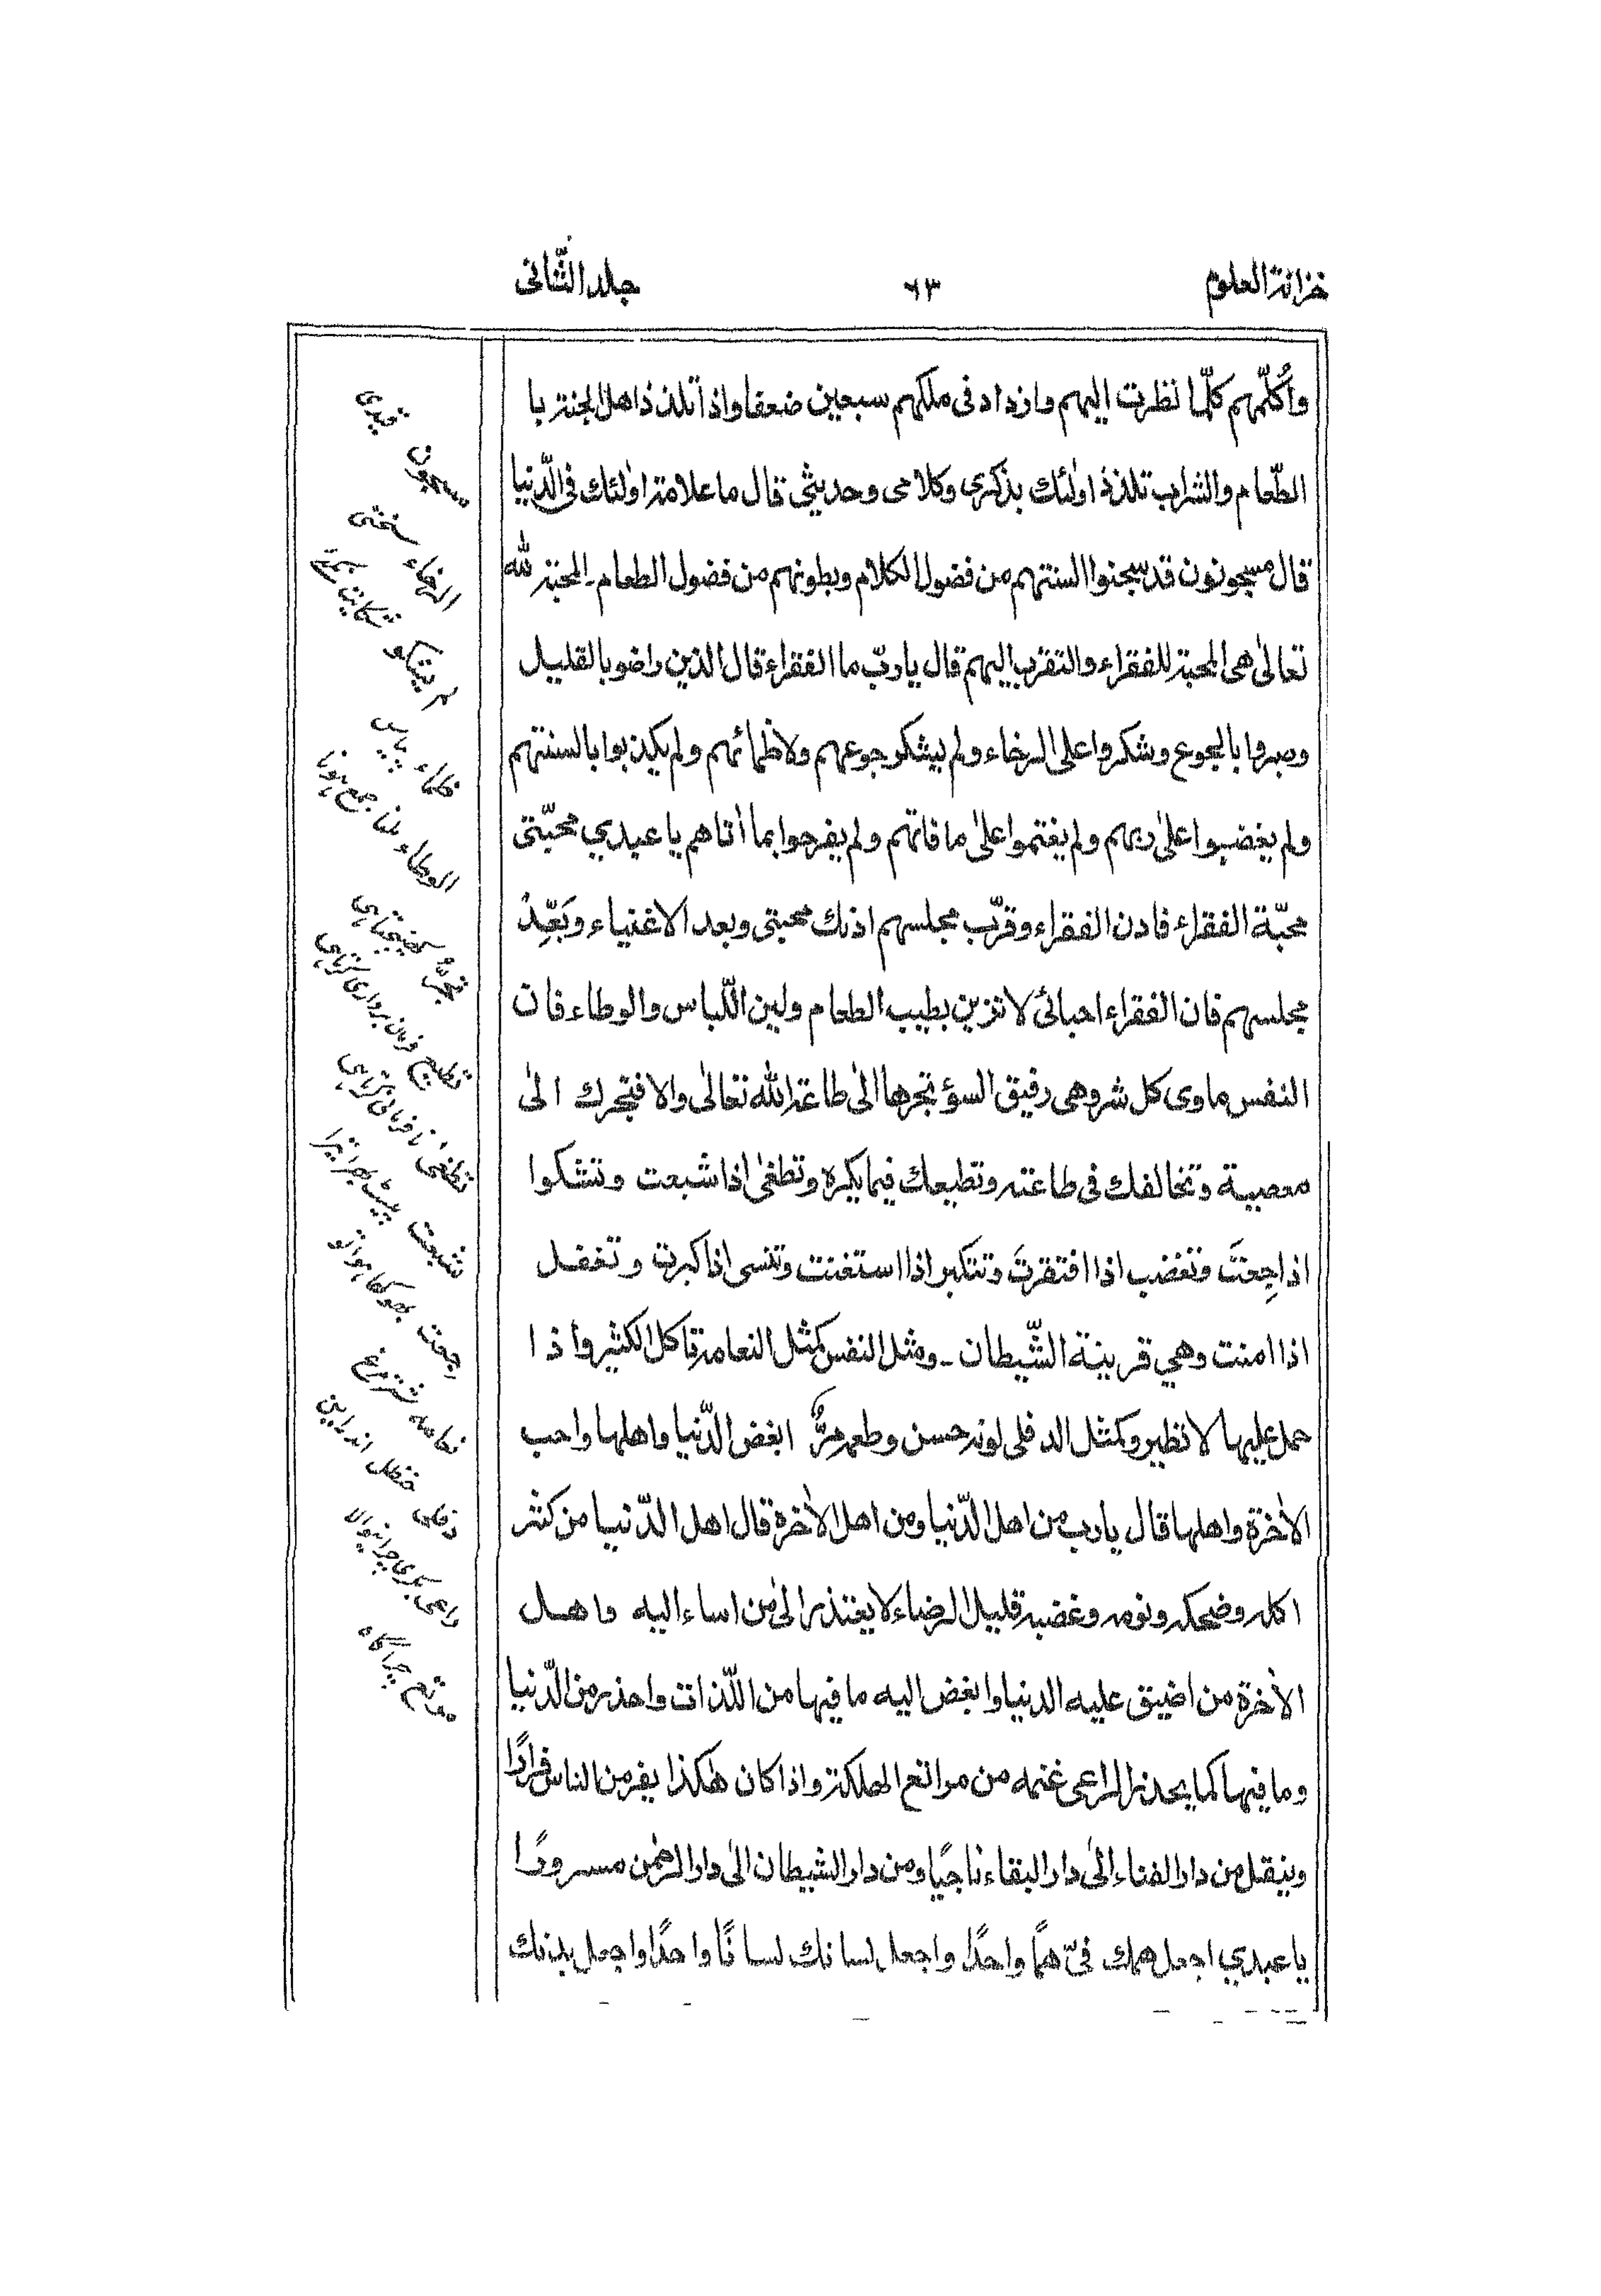 خزانة العلوم ٦٣ جلد الثّانی
وأُكلّمهم كلّما نظرت اليهم وازداد فی ملكهم سبعين ضعفا واذا تلذذ اهل الجنة با
الطّعام والشراب تلذذ اولٰئك بذكری وكلامی وحديثی قال ما علامة اولٰئك فی الدّنيا
قال مسجونون قد سجنوا السنتهم من فضول الكلام وبطونهم من فضول الطعام ـ المحبة لله
تعالیٰ هی المحبة للفقراء والتقرب اليهم قال يا ربّ ما الفقراء قال الذين راضو بالقليل
وصبروا بالجوع وشكروا علی الرخاء ولم يشكو جوعهم ولا ظمائهم ولم يكذبوا بالسنتهم
ولم يغضبوا علیٰ ربهم ولم يغتموا علیٰ ما فاتهم ولم يفرحوا بما أتاهم يا عبدي محبّتی
محبّة الفقراء فادن الفقراء وقرّب مجلسهم اذنك محبتی وبعد الاغنياء وبَعِّدْ
مجلسهم فان الفقراء احبائی لا تزين بطيب الطعام ولين اللّباس والوطاء فان
النفس ماوی كل شر وهی رفيق السؤ تجرها الیٰ طاعة الله تعالیٰ والا فتجرك الیٰ
معصية وتخالفك فی طاعته وتطيعك فيما يكره وتطغیٰ اذا شبعت وتشكوا
اذا جِعتَ وتغضب اذا افتقرتَ وتتكبر اذا استغنت وتنسی اذا كبرت وتغفل
اذا امنت وهي قرينة الشّيطان ـ ومثل النفس كمثل النعامة تاكل الكثير واذا
حمل عليها لا تطير وكمثل الدفلی لونه حسن وطعمه مرٌّ ابغض الدّنيا واهلها واحب
الاٰخرة واهلها قال يا رب من اهل الدّنيا ومن اهل الاٰخرة قال اهل الدّنيا من كثر
اكله وضحكه ونومه وغضبه قليل الرضاء لا يعتذر الیٰ من اساء اليه واهل
الاٰخرة من اضيق عليه الدنيا وابغض اليه ما فيها من اللّذات واحذره من الدّنيا
وما فيها كما يحذر الراعی غنمه من مراتع الهلكة واذا كان هٰكذا يفر من الناس فرارًا
وينقل من دار الفناء الیٰ دار البقاء ناجيًا ومن دار الشيطان الیٰ دار الرحمٰن مسرورًا
يا عبدي اجعل همك فیّ همًّا واحدًا واجعل لسانك لسانًا واحدًا واجعل بدنك
مسجون قیدی
الرخاء سختی
لم یشکو شکایت نہ
ظماء پیاس
الوطاء ملنا جمع ہونا
تجرّ کھینچتا ہی
تطیع فرمان برداری کرتا ہی
تطغیٰ نافرمانی کرتا ہی
شبعت پیٹ بھرا تیرا
اجعت بھوکا ہوا تو
نعامہ شترمرغ
دفلی حنظل اندراین
راعی بکری چرانیوالا
مرتع چراگاہ